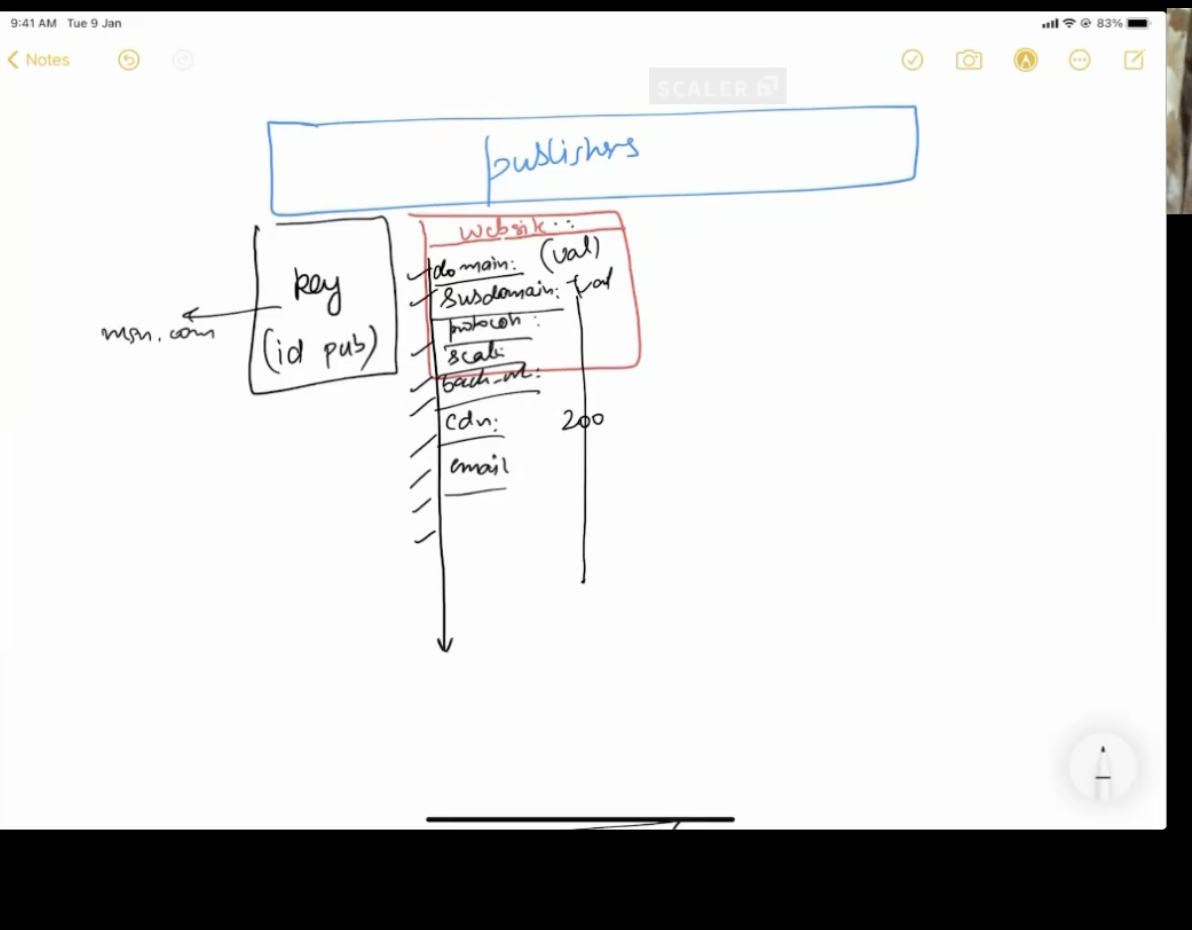 9:41 AM Tue 9 Jan
83%
Notes
SCALER
publishers
website::
key
(id pub)
msn.com
domain: (val)
subdomain: val
protocol:
scale
cdn: 200
email